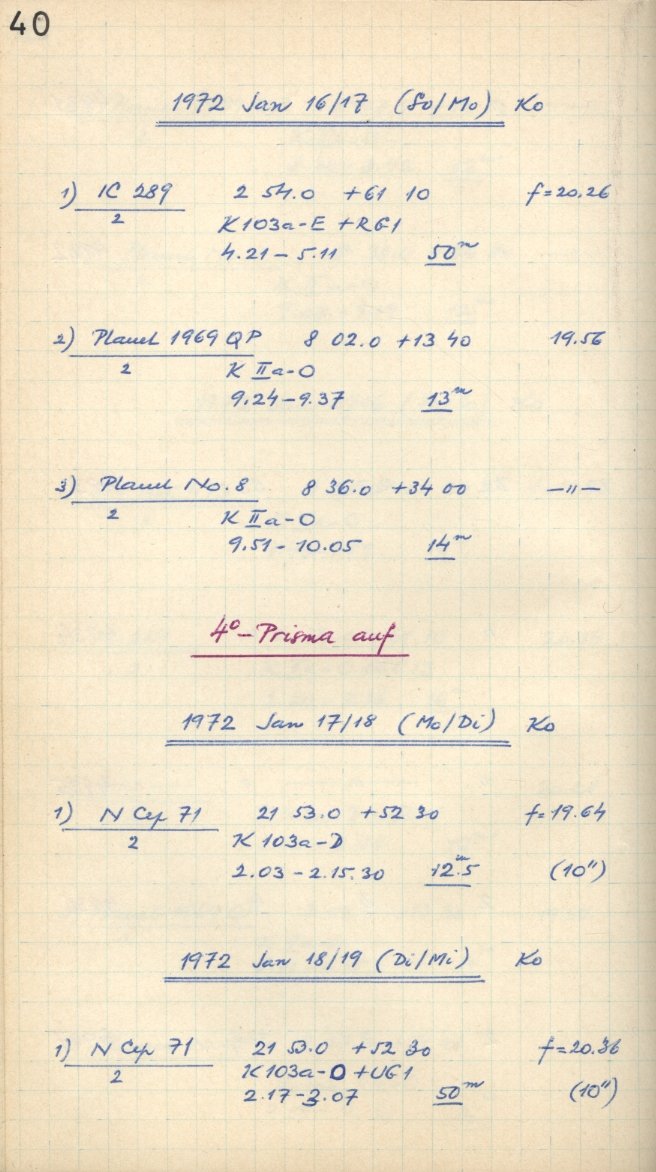 40
1972 Jan 16/17 (So/Mo) Ko
1) IC 289 2 54.0 +61 10 f=20.26
2 K103a-E +RG1
4.21 – 5.11 50m
2) Planet 1969 QP 8 02.0 +13 40 19.56
2 K IIa-O
9.24 – 9.37 13m
3) Planet No. 8 8 36.0 +34 00 —"—
2 K IIa-O
9.51 – 10.05 14m
4°-Prisma auf
1972 Jan 17/18 (Mo/Di) Ko
1) N Cep 71 21 53.0 +52 30 f=19.64
2 K 103a-D
2.03 – 2.15.30 12m.5 (10")
1972 Jan 18/19 (Di/Mi) Ko
1) N Cep 71 21 53.0 +52 30 f=20.36
2 K103a-O +UG1
2.17–3.07 50m (10")